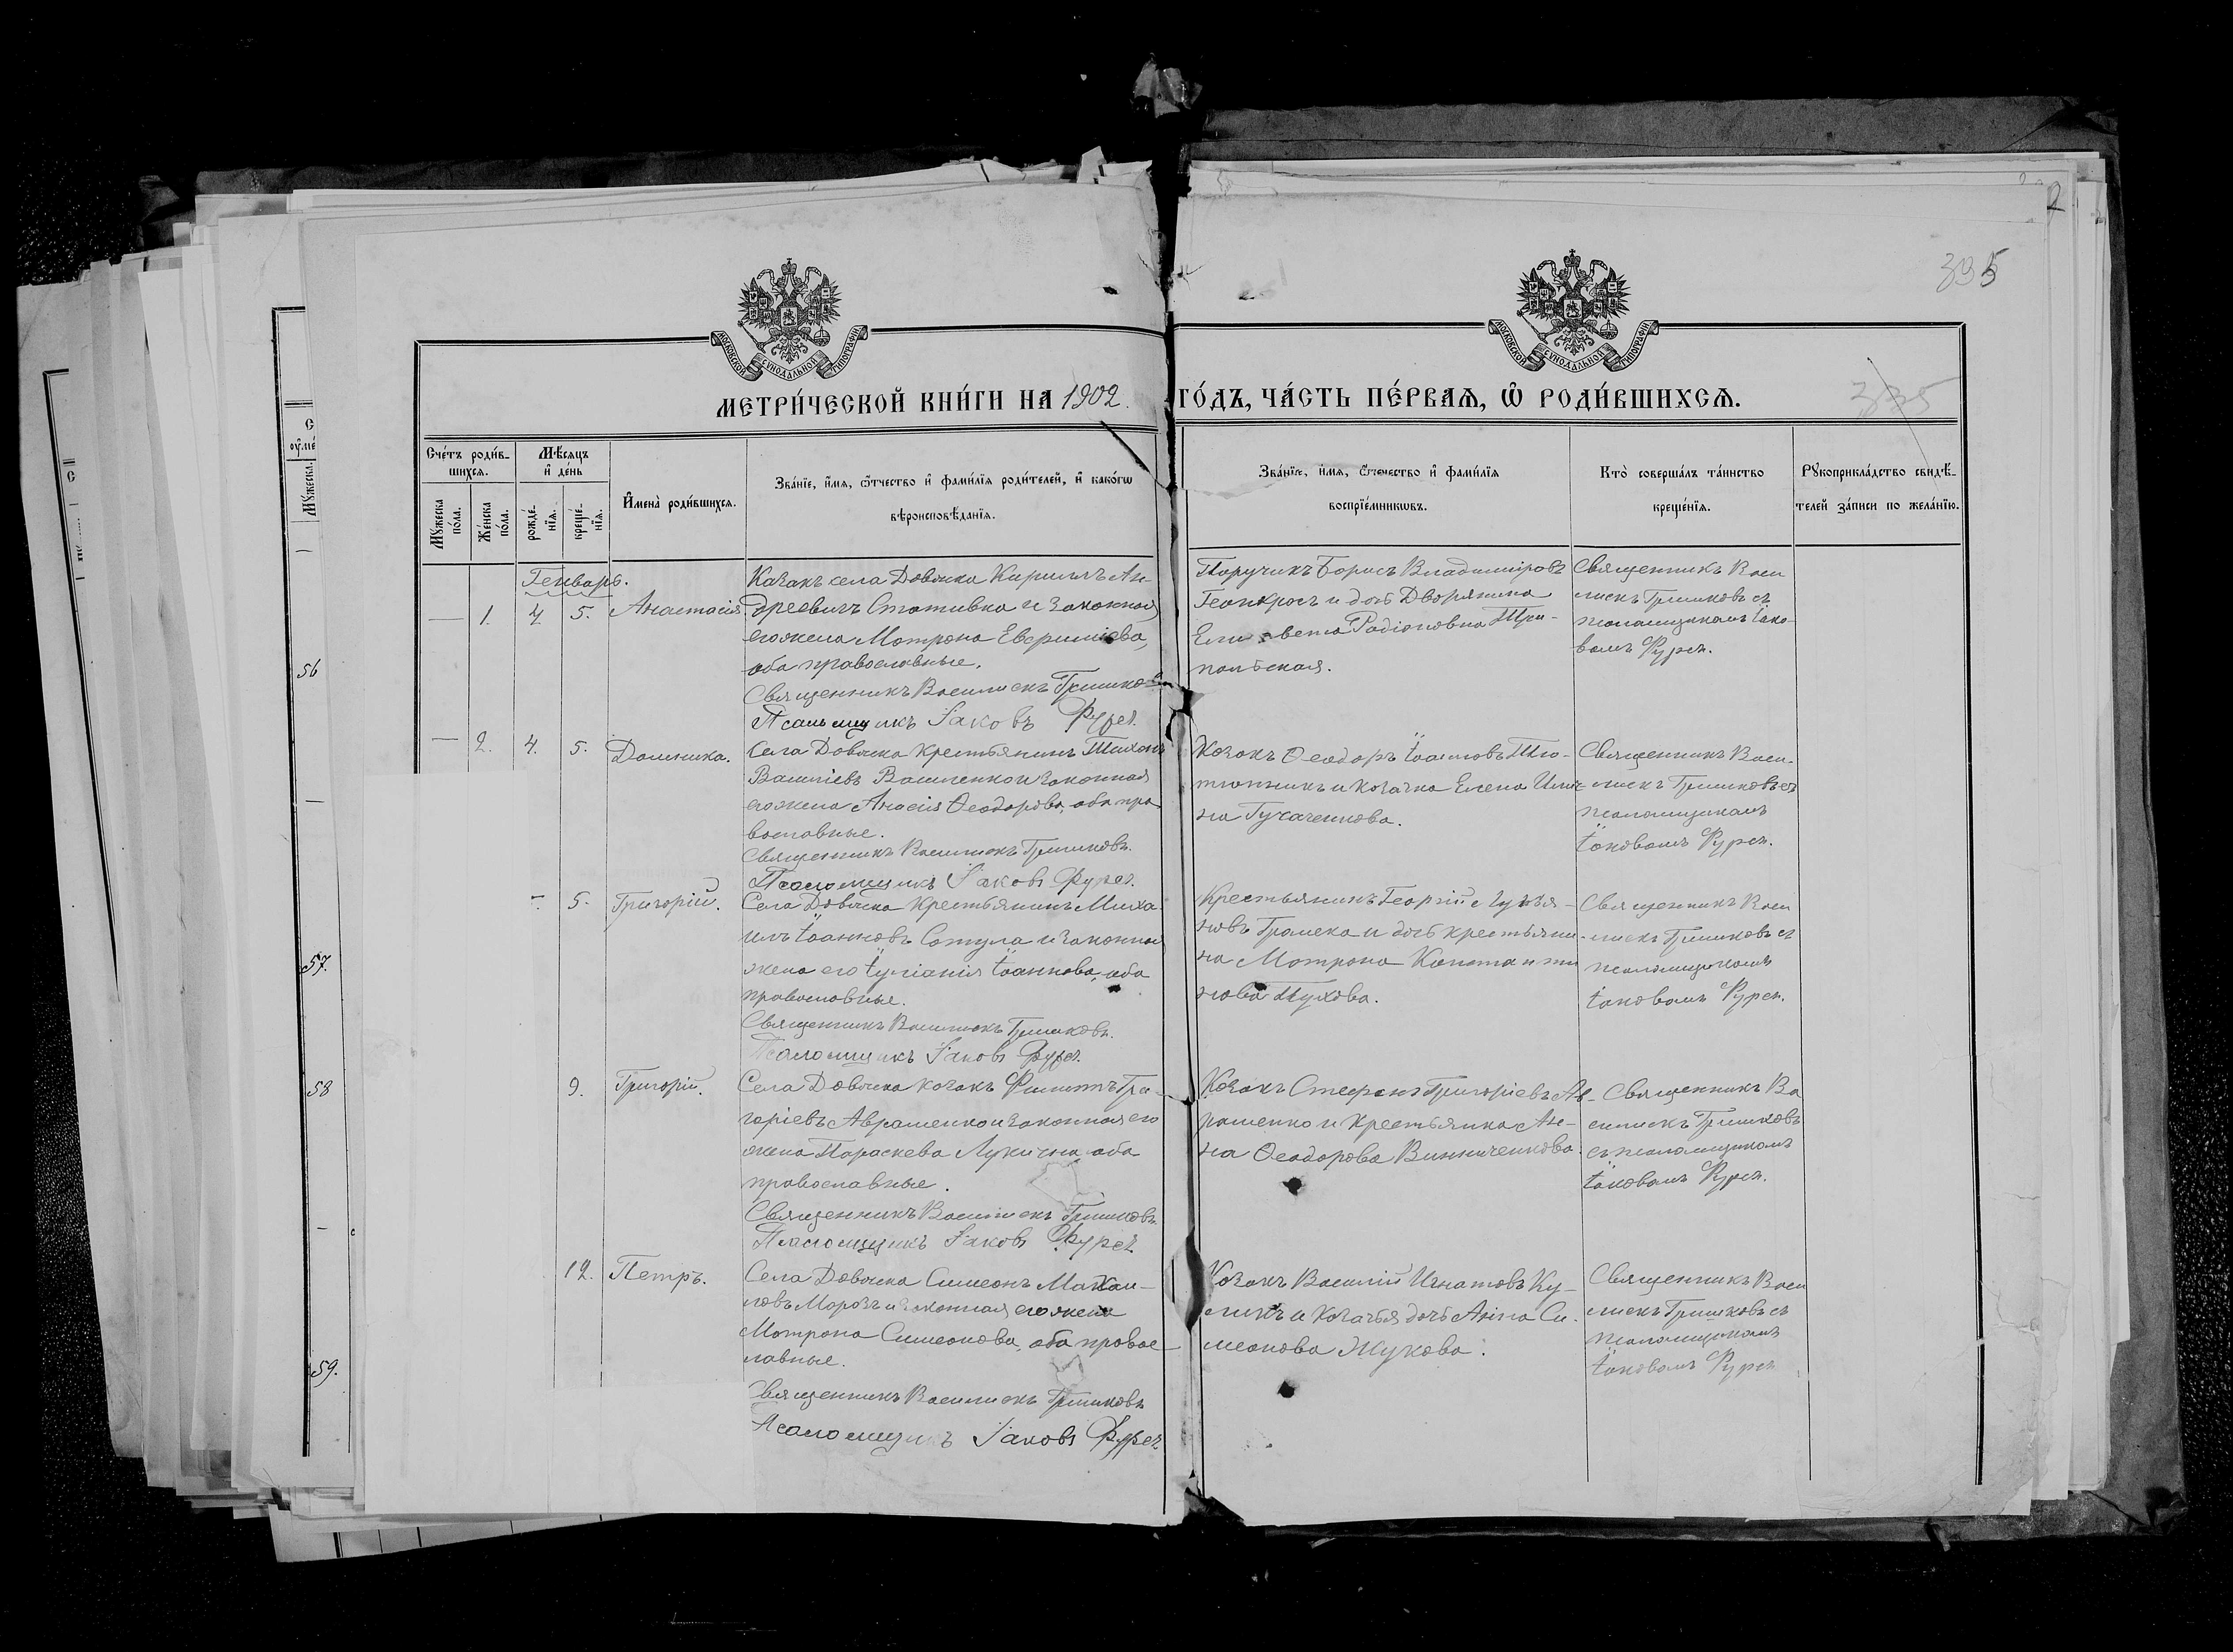 335
МОСКОВСКОЙ СѴНОДАЛЬНОЙ ТИПОГРАФІИ
МОСКОВСКОЙ СѴНОДАЛЬНОЙ ТИПОГРАФІИ
МЕТРИ́ЧЕСКОЙ КНИ́ГИ НА 1902 ГО́ДЪ, ЧА́СТЬ ПЕ́РВАѦ, Ѡ҆ РОДИ́ВШИХСѦ.
335
Сче́тъ роди́в-
шихсѧ.
Мѣ́сѧцъ
и҆ де́нь
Мꙋ́жеска
по́ла.
Же́нска
по́ла.
рожде́-
нїѧ.
креще́-
нїѧ.
И҆мена̀ роди́вшихсѧ.
Зва́нїе, и҆́мѧ, ѻ҆́тчество и҆ фамі́лїѧ роди́телей, и҆ како́гѡ
вѣроисповѣ́данїѧ.
Зва́нїе, и҆́мѧ, ѻ҆́тчество и҆ фамі́лїѧ
воспрїе́мникѡвъ.
Кто̀ соверша́лъ та́инство
креще́нїѧ.
Рꙋкоприкла́дство свидѣ́-
телей за́писи по жела́нїю.
Генварь.
— 1. 4 5. Анастасія
Казакъ села Довжика Кириллъ Ан-
дреевичъ Стативка и законная
его жена Мотрона Евфиміева,
оба православные.
Священникъ Василискъ Гришковъ
Псаломщикъ Іаковъ Фурса.
Поручикъ Борисъ Владиміровъ
и дочь Дворянина
Елисавета Радіоновна
польская.
Священникъ Васи
лискъ Гришковъ съ
псаломщикомъ Іако-
вомъ Фурса.
— 2. 4. 5. Домника.
Села Довжика крестьянинъ Тихонъ
Василіевъ Василенко и законная
его жена Анасія Ѳеодорова, оба пра
вославные.
Священникъ Василискъ Гришковъ.
Псаломщикъ Іаковъ Фурса.
Козакъ Ѳеодоръ Іоанновъ
и козачка Елена
на Гусаченкова.
Священникъ Васи-
лискъ Гришковъ съ
псаломщикомъ
Іаковомъ Фурса.
5. Григорій.
Села Довжика крестьянинъ Миха
илъ Іоанновъ Сотула и законная
жена его Іуліанія Іоаннова, оба
православные.
Священникъ Василискъ Гришковъ.
Псаломщикъ Іаковъ Фурса.
Крестьянинъ Георгій
новъ и дочь крестьяни-
на Мотрона Константи
нова Пухова.
Священникъ Васи
лискъ Гришковъ съ
псаломщикомъ
Іаковомъ Фурса.
9. Григорій.
Села Довжика козакъ Филиппъ Гри-
горіевъ Авраменко и законная его
жена Параскева Лукична оба
православные.
Священникъ Василискъ Гришковъ.
Псаломщикъ Іаковъ Фурса
Козакъ Стефанъ Григоріевъ Ав-
раменко и крестьянка Ан-
на Ѳеодорова Винниченкова.
Священникъ Ва
силискъ Гришковъ
съ псаломщикомъ
Іаковомъ Фурса.
12. Петръ.
Села Довжика Симеонъ Михаи-
ловъ Морозъ и законная его жена
Мотрона Симеонова, оба правос-
лавные.
Священникъ Василискъ Гришковъ
Псаломщикъ Іаковъ Фурса
Козакъ Василій Игнатовъ Ку-
ликъ и козачья дочь Анна Си-
меонова Жукова.
Священникъ Васи
лискъ Гришковъ съ
псаломщикомъ
Іаковомъ Фурса
56
57.
58
59.